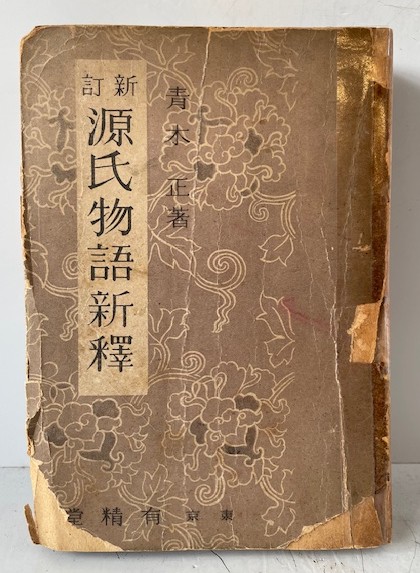 青木正著
新訂
源氏物語新釋
東京 有精堂